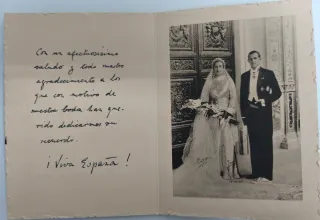 Con un afectuosísimo
saludo y todo nuestro
agradecimiento a los
que con motivo de
nuestra boda han que-
rido dedicarnos un
recuerdo.
¡Viva España!